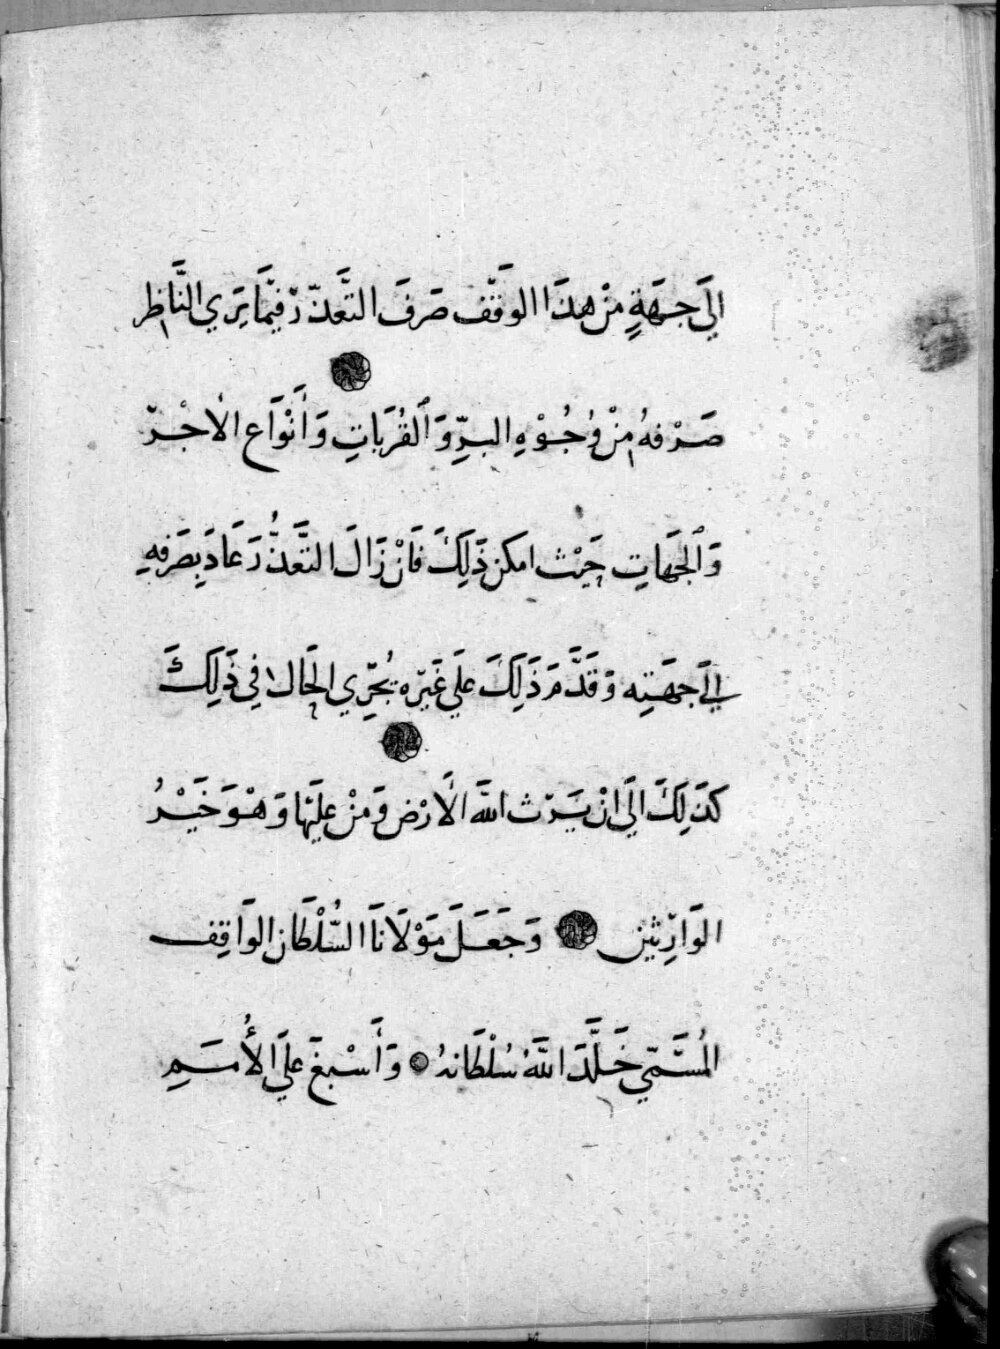 الَي جِهَةٍ مِنْ هَذَا الوَقْف صَرَفَ التَّعَذّرْ فِيْمَا يَرَي النَّاظِر
صَرْفهُ مِنْ وُجُوْهِ البِرِّ وَالقُرُبَاتِ وَأَنْوَاع الاَجْرّ
وَالجَهَاتِ حَيْث امكن ذَلِكَ فَانْ زَالَ التَّعَذُّر عَادَ بِصَرفِهِ
اِلَي جِهَتِه وَقَدَّمَ ذَلِكَ عَلَي غَيْرّه يُجْرِي الحَال فِي ذَلِكَ
كَذَلِكَ الَي انْ يَرِث اللهَ الاَرْضِ وَمَنْ عَلَيْهَا وَهْوَ خَيْرُ
الوَارِثِين وَجَعَلَ مَوْلَانَا السُّلْطَان الوَاقِف
المُسَمَّي خَلَّدَ اللهُ سُلْطَانهُ وَأَسْبغَ عَلَي الأُمَمِ